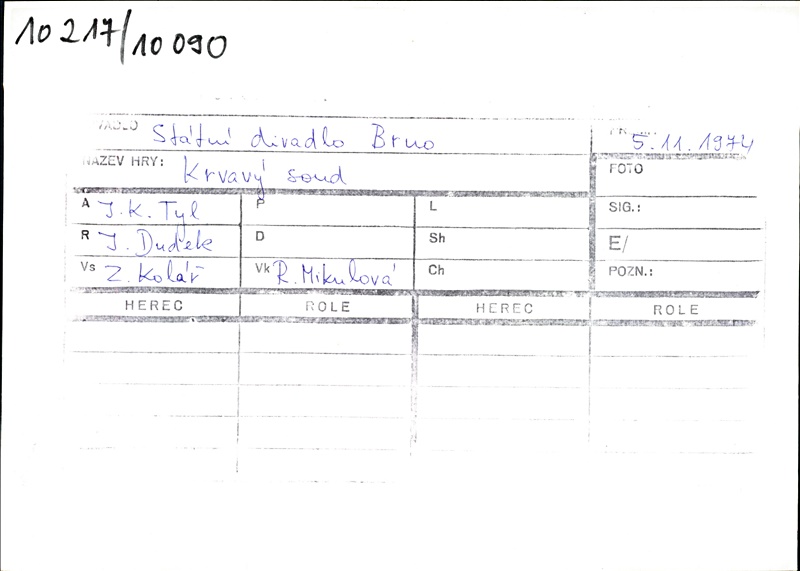 10 217/10 090
Státní divadlo Brno
5.11.1974
NÁZEV HRY: Krvavý soud
FOTO
A J. K. Tyl P L SIG.:
R J. Dudek D Sh E/
Vs Z. Kolář Vk R. Mikulová Ch POZN.:
HEREC ROLE HEREC ROLE